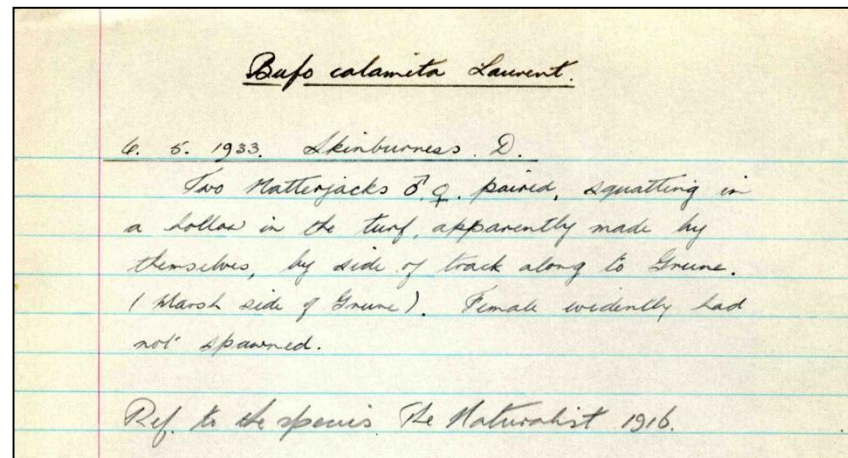 Bufo calamita Laurent.
6. 5. 1933. Skinburness. D.
Two Natterjacks ♂, ♀. paired, squatting in
a hollow in the turf, apparently made by
themselves, by side of track along to Grune.
(Marsh side of Grune). Female evidently had
not spawned.
Ref. to the species The Naturalist 1916.